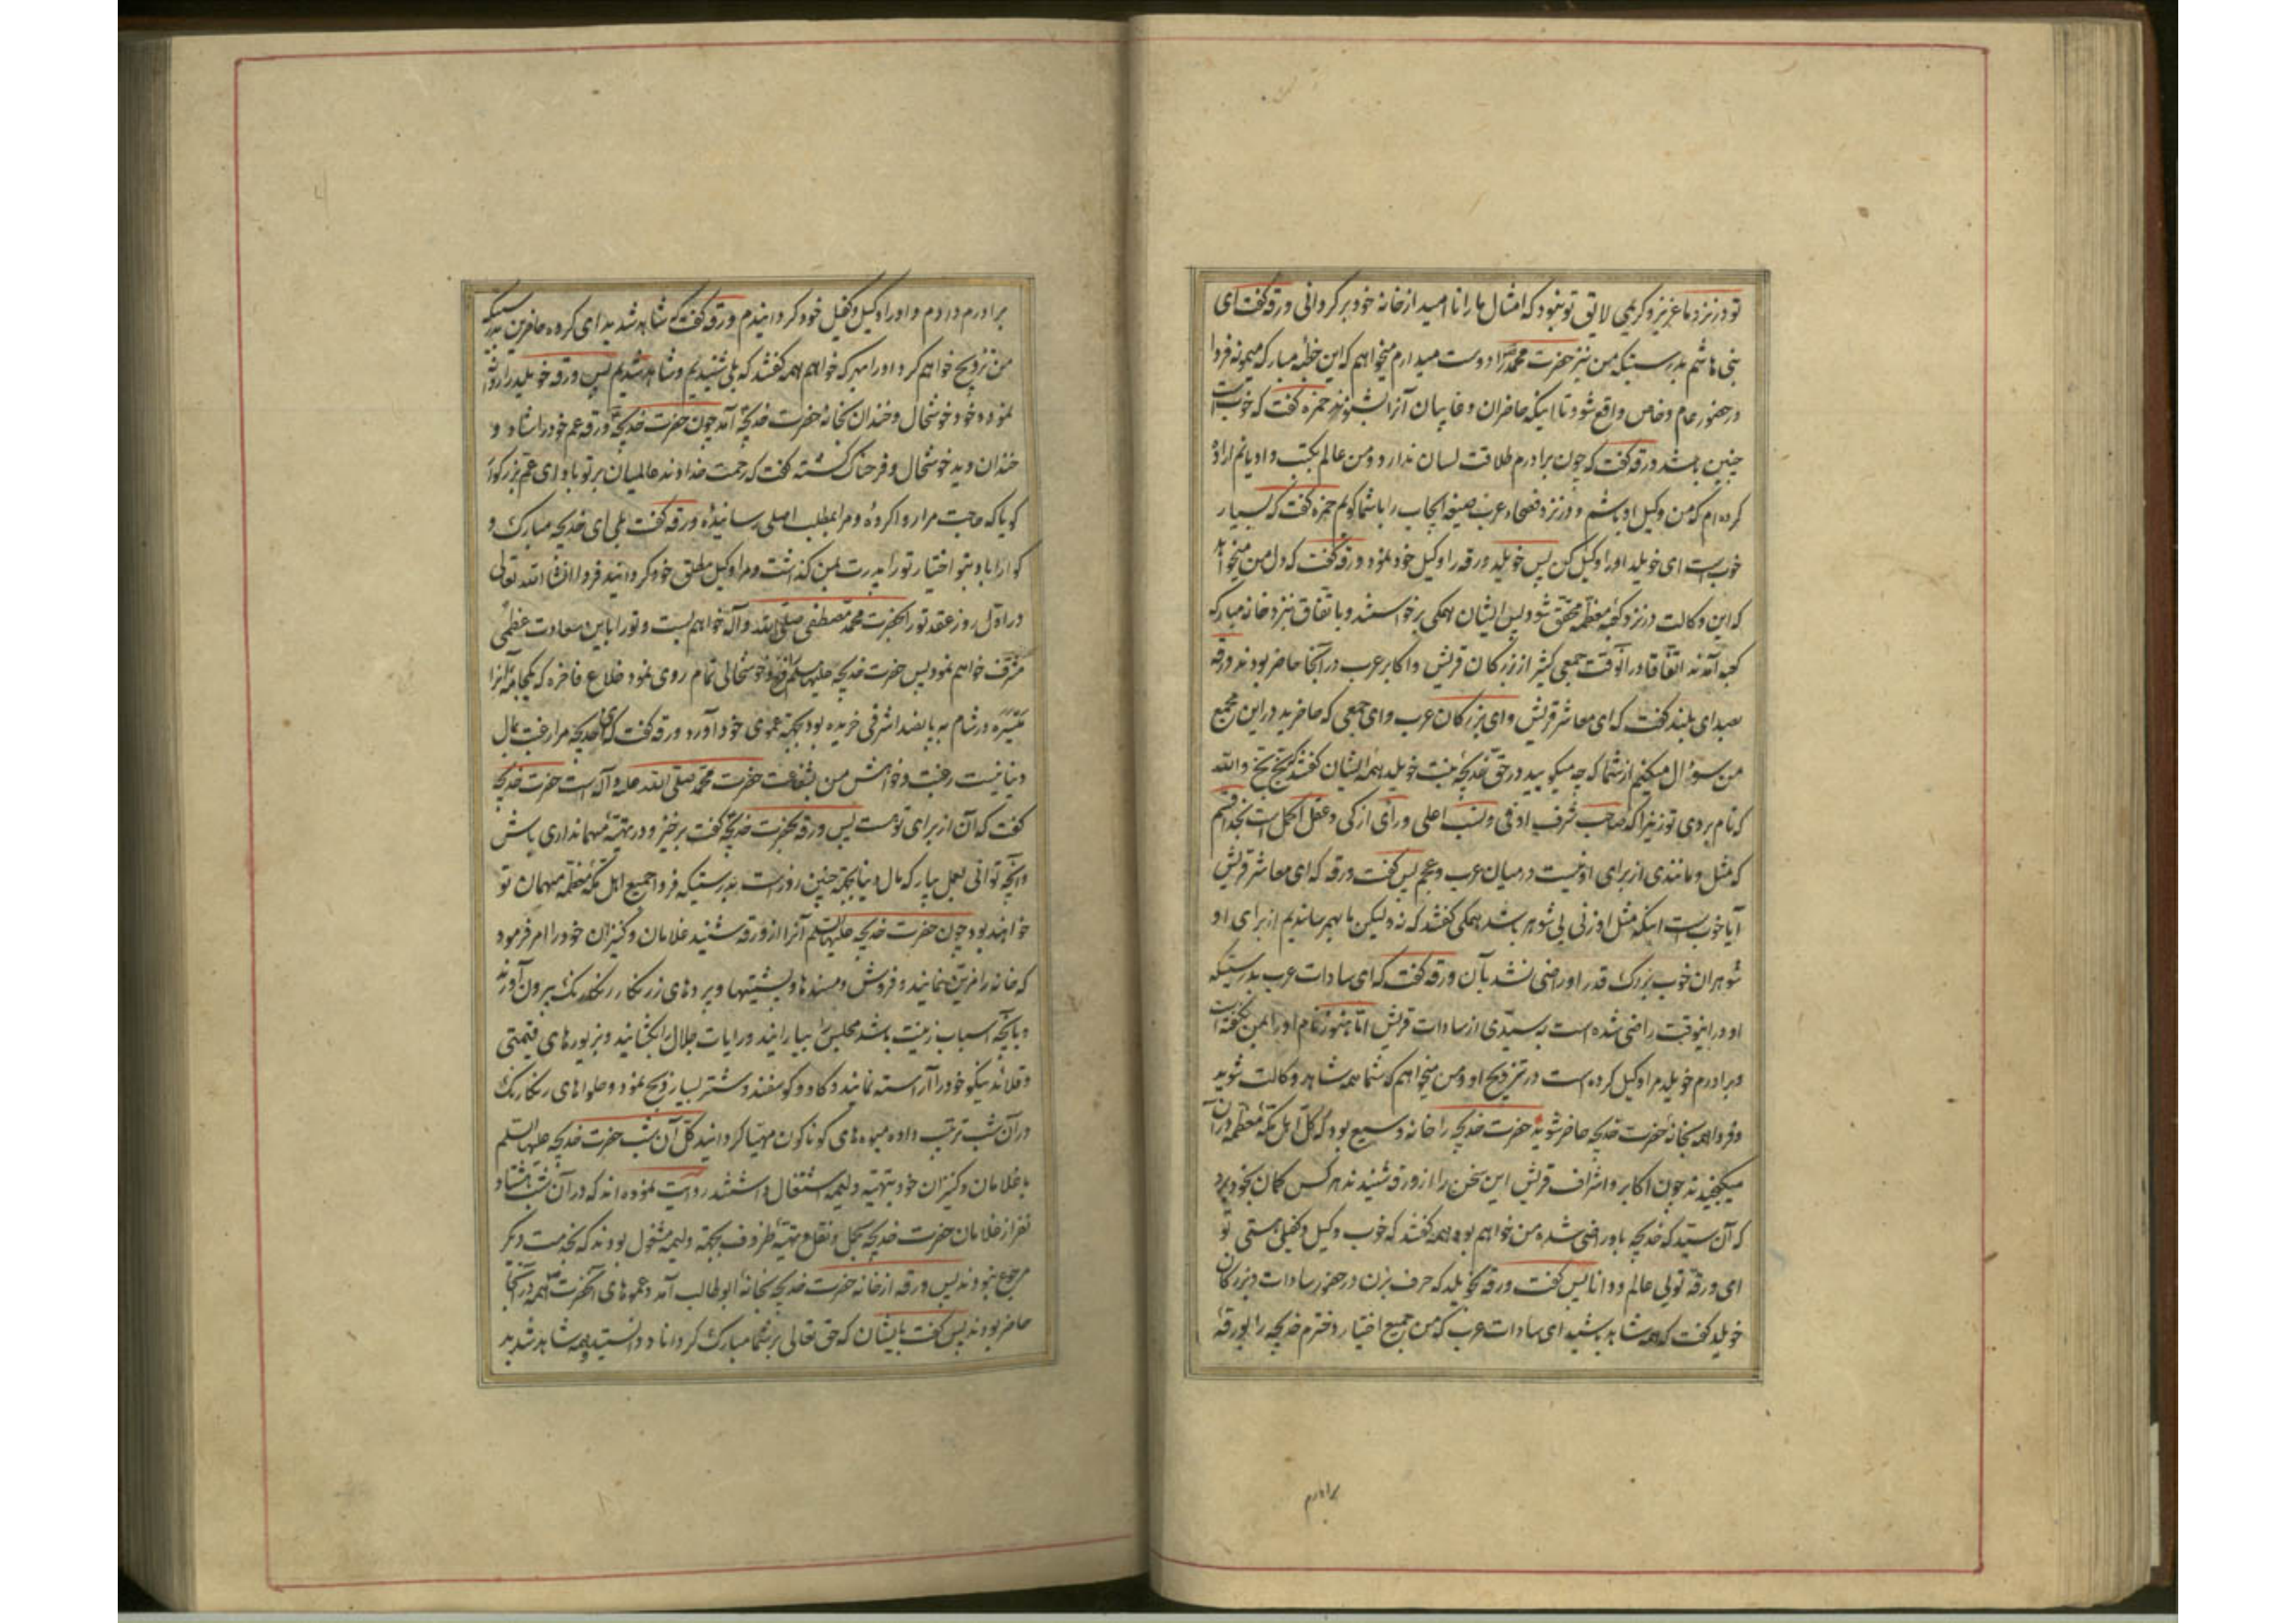 تو در نزد ما عزیز و کریمی لایق تو نبود که امثال ما را ناامید از خانه خود برگردانی ورقه گفت ای
بنی هاشم بدرستیکه من نیز حضرت محمد را دوست میدارم میخواهم که این خطبه مبارکه میمونه فردا
در حضور عام و خاص واقع شود تا اینکه حاضران و غایبان آنرا بشنوند حمزه گفت که خوب است
چنین باشد ورقه گفت که چون برادرم طلاقت لسان ندارد و من عالم بکتب و ادیانم اراده
کرده ام که من وکیل او باشم و در نزد فصحاء عرب صیغه ایجاب را باشما گویم حمزه گفت که بسیار
خوب است ای خویلد او را وکیل کن پس خویلد ورقه را وکیل خود نمود ورقه گفت که دل من میخواهد
که این وکالت در نزد کعبه معظمه محقق شود پس ایشان همگی برخواستند و باتفاق بنزد خانه مبارکه
کعبه آمدند اتفاقا در آنوقت جمعی کثیر از بزرگان قریش و اکابر عرب در آنجا حاضر بودند ورقه
بصدای بلند گفت که ای معاشر قریش و ای بزرگان عرب و ای جمعی که حاضرید در این مجمع
من سوال میکنم از شما که چه میگویید در حق خدیجه بنت خویلد همه ایشان گفتند که بخ بخ والله
که نام بردی تو زیرا که صاحب شرف اوفی و نسب اعلی و رای ازکی و عقل اکمل است بخدا قسم
که مثل و مانندی از برای او نیست در میان عرب و عجم پس گفت ورقه که ای معاشر قریش
آیا خوب است اینکه مثل او زنی بی شوهر باشد همگی گفتند که نه ولیکن ما بهم رساندیم از برای او
شوهران خوب بزرگ قدر او راضی نشد بآن ورقه گفت که ای سادات عرب بدرستیکه
او در اینوقت راضی شده است به سیدی از سادات قریش اما هنوز نام او را بمن نگفته است
و برادرم خویلد مرا وکیل کرده است در تزویج او و من میخواهم که شما همه شاهد وکالت شوید
و فردا همه بخانه حضرت خدیجه حاضر شوید حضرت خدیجه را خانه وسیع بود که کل اهل مکه معظمه در آن
میگنجیدند چون اکابر و اشراف قریش این سخن را از ورقه شنیدند هر کس گمان بخود برد
که آن سید که خدیجه باو راضی شده من خواهم بود همه گفتند که خوب وکیل و کفیلی هستی تو
ای ورقه تویی عالم و دانا پس گفت ورقه بخویلد که حرف بزن در حضور سادات و بزرگان
خویلد گفت که همه شاهد باشید ای سادات عرب که من جمیع اختیار دخترم خدیجه را بورقه
برادرم
برادرم دادم و او را وکیل و کفیل خود گردانیدم ورقه گفت که شاهد شدید ای گروه حاضرین بدرستیکه
من تزویج خواهم کرد او را بهر که خواهم همه گفتند که بلی شنیدیم و شاهد شدیم پس ورقه خویلد را
نموده خود خوشحال و خندان بخانه حضرت خدیجه آمد چون حضرت خدیجه ورقه عم خود را شاد و
خندان دید خوشحال و فرحناک گشته گفت که رحمت خداوند عالمیان بر تو باد ای عم بزرگوار
گویا که حاجت مرا روا کرده و مرا بمطلب اصلی رسانیده ورقه گفت بلی ای خدیجه مبارک و
گوارا باد بتو اختیار تو را پدرت بمن گذاشت و مرا وکیل مطلق خود گردانید فردا انشاء الله تعالی
در اول روز عقد تو را بحضرت محمد مصطفی صلی الله و آله خواهم بست و تو را باین سعادت عظمی
مشرف خواهم نمود پس حضرت خدیجه علیها سلم خوشحالی تمام روی نمود خلاع فاخره که یکجامه آنرا
میسره در شام به پانصد اشرفی خریده بود بجهة عموی خود آورد ورقه گفت که ای خدیجه مرا رغبت بمال
دنیا نیست رغبت و خواهش من شفاعت حضرت محمد صلی الله علیه و آله است حضرت خدیجه
گفت که آن از برای توست پس ورقه بحضرت خدیجه گفت برخیز و در تهیه مهمانداری باش
و آنچه توانی بعمل بیار که مال دنیا بجهة چنین روز است بدرستیکه فردا جمیع اهل مکه معظمه میهمان تو
خواهند بود چون حضرت خدیجه علیها السلم آنرا از ورقه شنید غلامان و کنیزان خود را امر فرمود
که خانه را مزین نمایند و فروش و مسندها و پشتیها و پردهای زرنگار رنگارنگ بیرون آورند
و بآنچه اسباب زینت باشد مجلس را بیارایند و رایات جلال را بگشایند و بزیورهای قیمتی
و قلائد نیکو خود را آراسته نمایند و گاو و گوسفند و شتر بسیار ذبح نمود و حلواهای رنگارنگ
در آن شب ترتیب داده میوه های گوناگون مهیا گردانید کل آن شب حضرت خدیجه علیها السلم
با غلامان و کنیزان خود بتهیه ولیمه اشتغال داشتند روایت نموده اند که در آن شب هشتاد
نفر از غلامان حضرت خدیجه بحمل و نقل و تهیه ظروف بجهة ولیمه مشغول بودند که بخدمت دیگر
مرجوع نبودند پس ورقه از خانه حضرت خدیجه بخانه ابوطالب آمد و عموهای آنحضرت همه در آنجا
حاضر بودند پس گفت بایشان که حق تعالی بر شما مبارک گرداناد دانستید و همه شاهد شدید